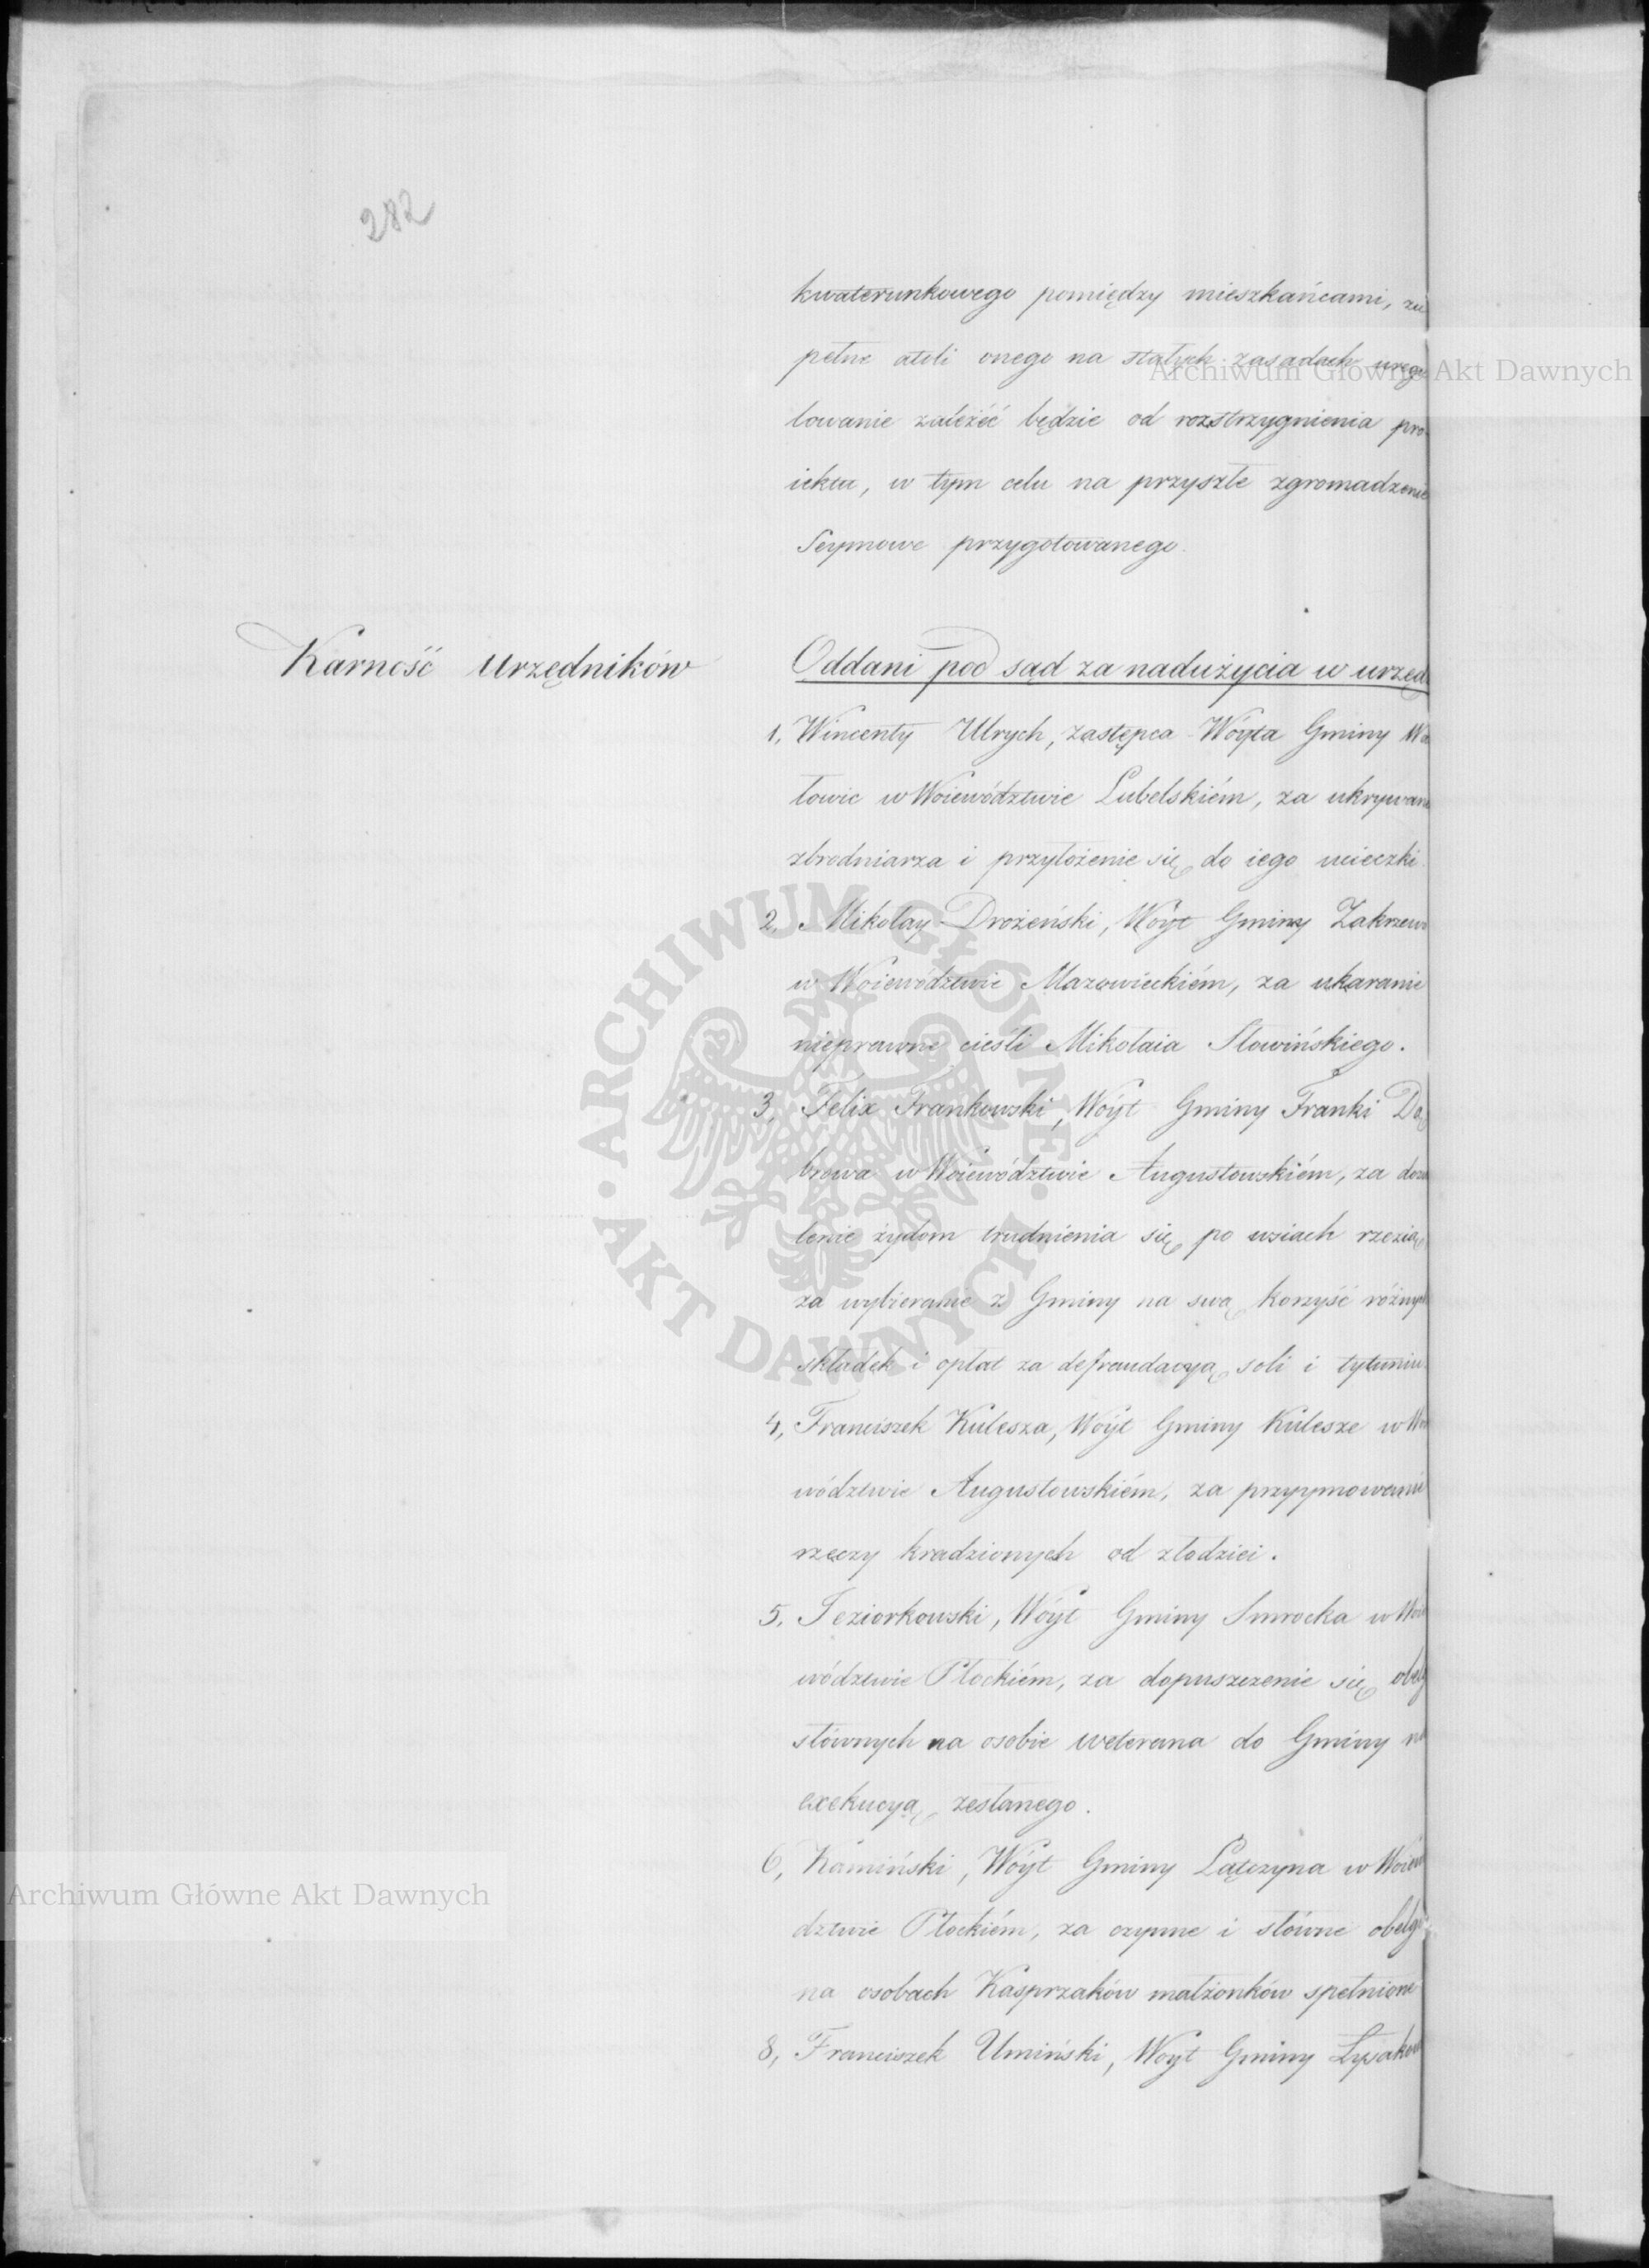 282
kwaterunkowego pomiędzy mieszkańcami, zu
pełne atoli onego na stałych zasadach uregu
lowanie zależéć będzie od rozstrzygnienia pro
iektu, w tym celu na przyszłe zgromadzenie
Seymowe przygotowanego.
Karność Urzędników
Oddani pod sąd za nadużycia w urzęd
1, Wincenty Ulrych, zastępca Wóyta Gminy
towic w Woiewództwie Lubelskiém, za ukrywani
zbrodniarza i przyłożenie się do iego ucieczki.
2, Mikołay Drożeński, Wóyt Gminy Zakrzew
w Woiewództwie Mazowieckiém, za ukaranie
nieprawne cieśli Mikołaia Słowińskiego.
3, Felix Frankowski, Wóyt Gminy Franki Dą
browa w Woiewództwie Augustowskiém, za dozwo
lenie żydom trudnienia się po wsiach rzezią
za wybieranie z Gminy na swą korzyść różnych
składek i opłat za defraudacyą soli i tytuniu.
4, Franciszek Kulesza, Wóyt Gminy Kulesze w Woie
wództwie Augustowskiém, za przyymowanie
rzeczy kradzionych od złodziei.
5, Jeziorkowski, Wóyt Gminy Smrocka w Woie
wództwie Płockiém, za dopuszczenie się obelg
słównych na osobie weterana do Gminy na
exekucyą zesłanego.
6, Kamiński, Wóyt Gminy Łątczyna w Woiew
dztwie Płockiém, za czynne i słówne obelgi
na osobach Kasprzaków małżonków spełnione
8, Franciszek Umiński, Wóyt Gminy Łysakow
Archiwum Główne Akt Dawnych
Archiwum Główne Akt Dawnych
ARCHIWUM GŁÓWNE AKT DAWNYCH